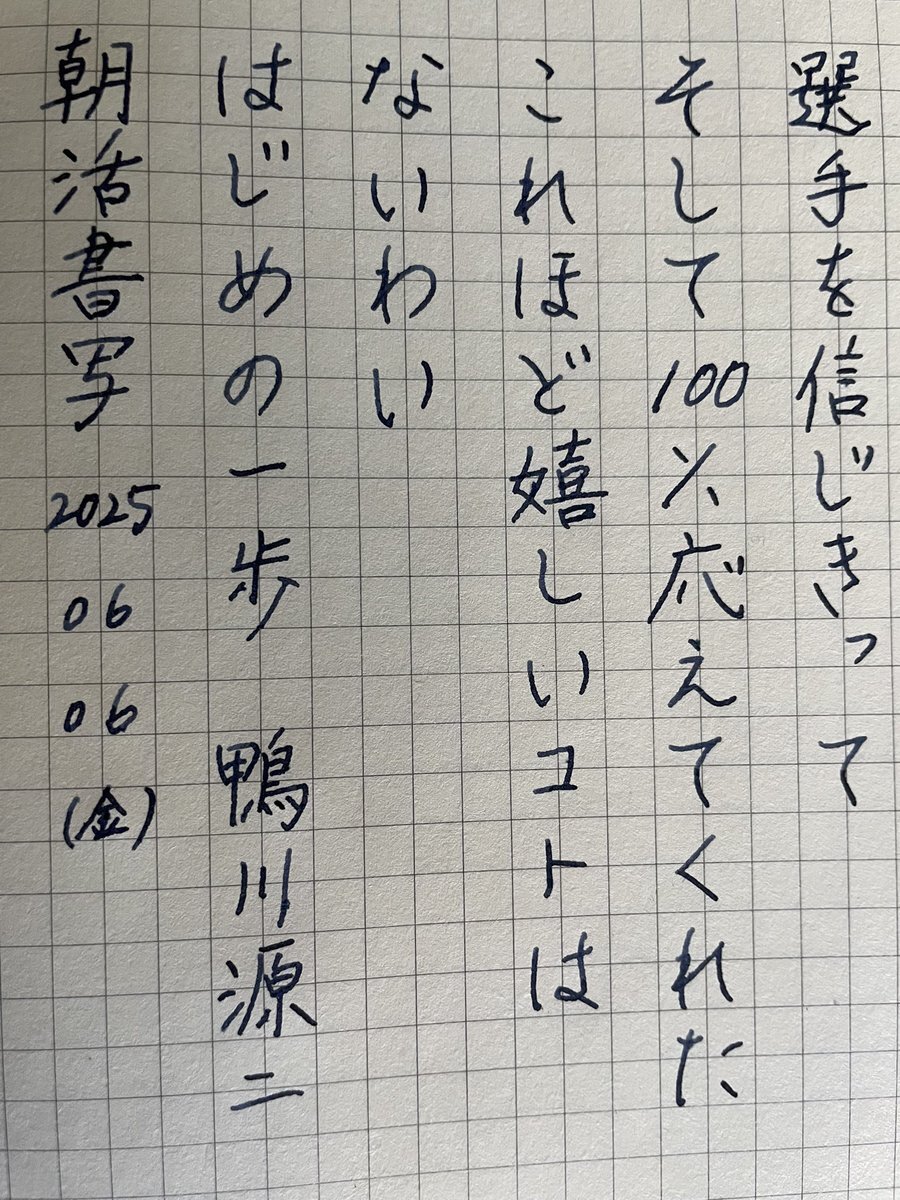 選手を信じきって
そして100％応えてくれた
これほど嬉しいコトは
ないわい
はじめの一歩 鴨川源二
朝活書写 2025 06 06 (金)